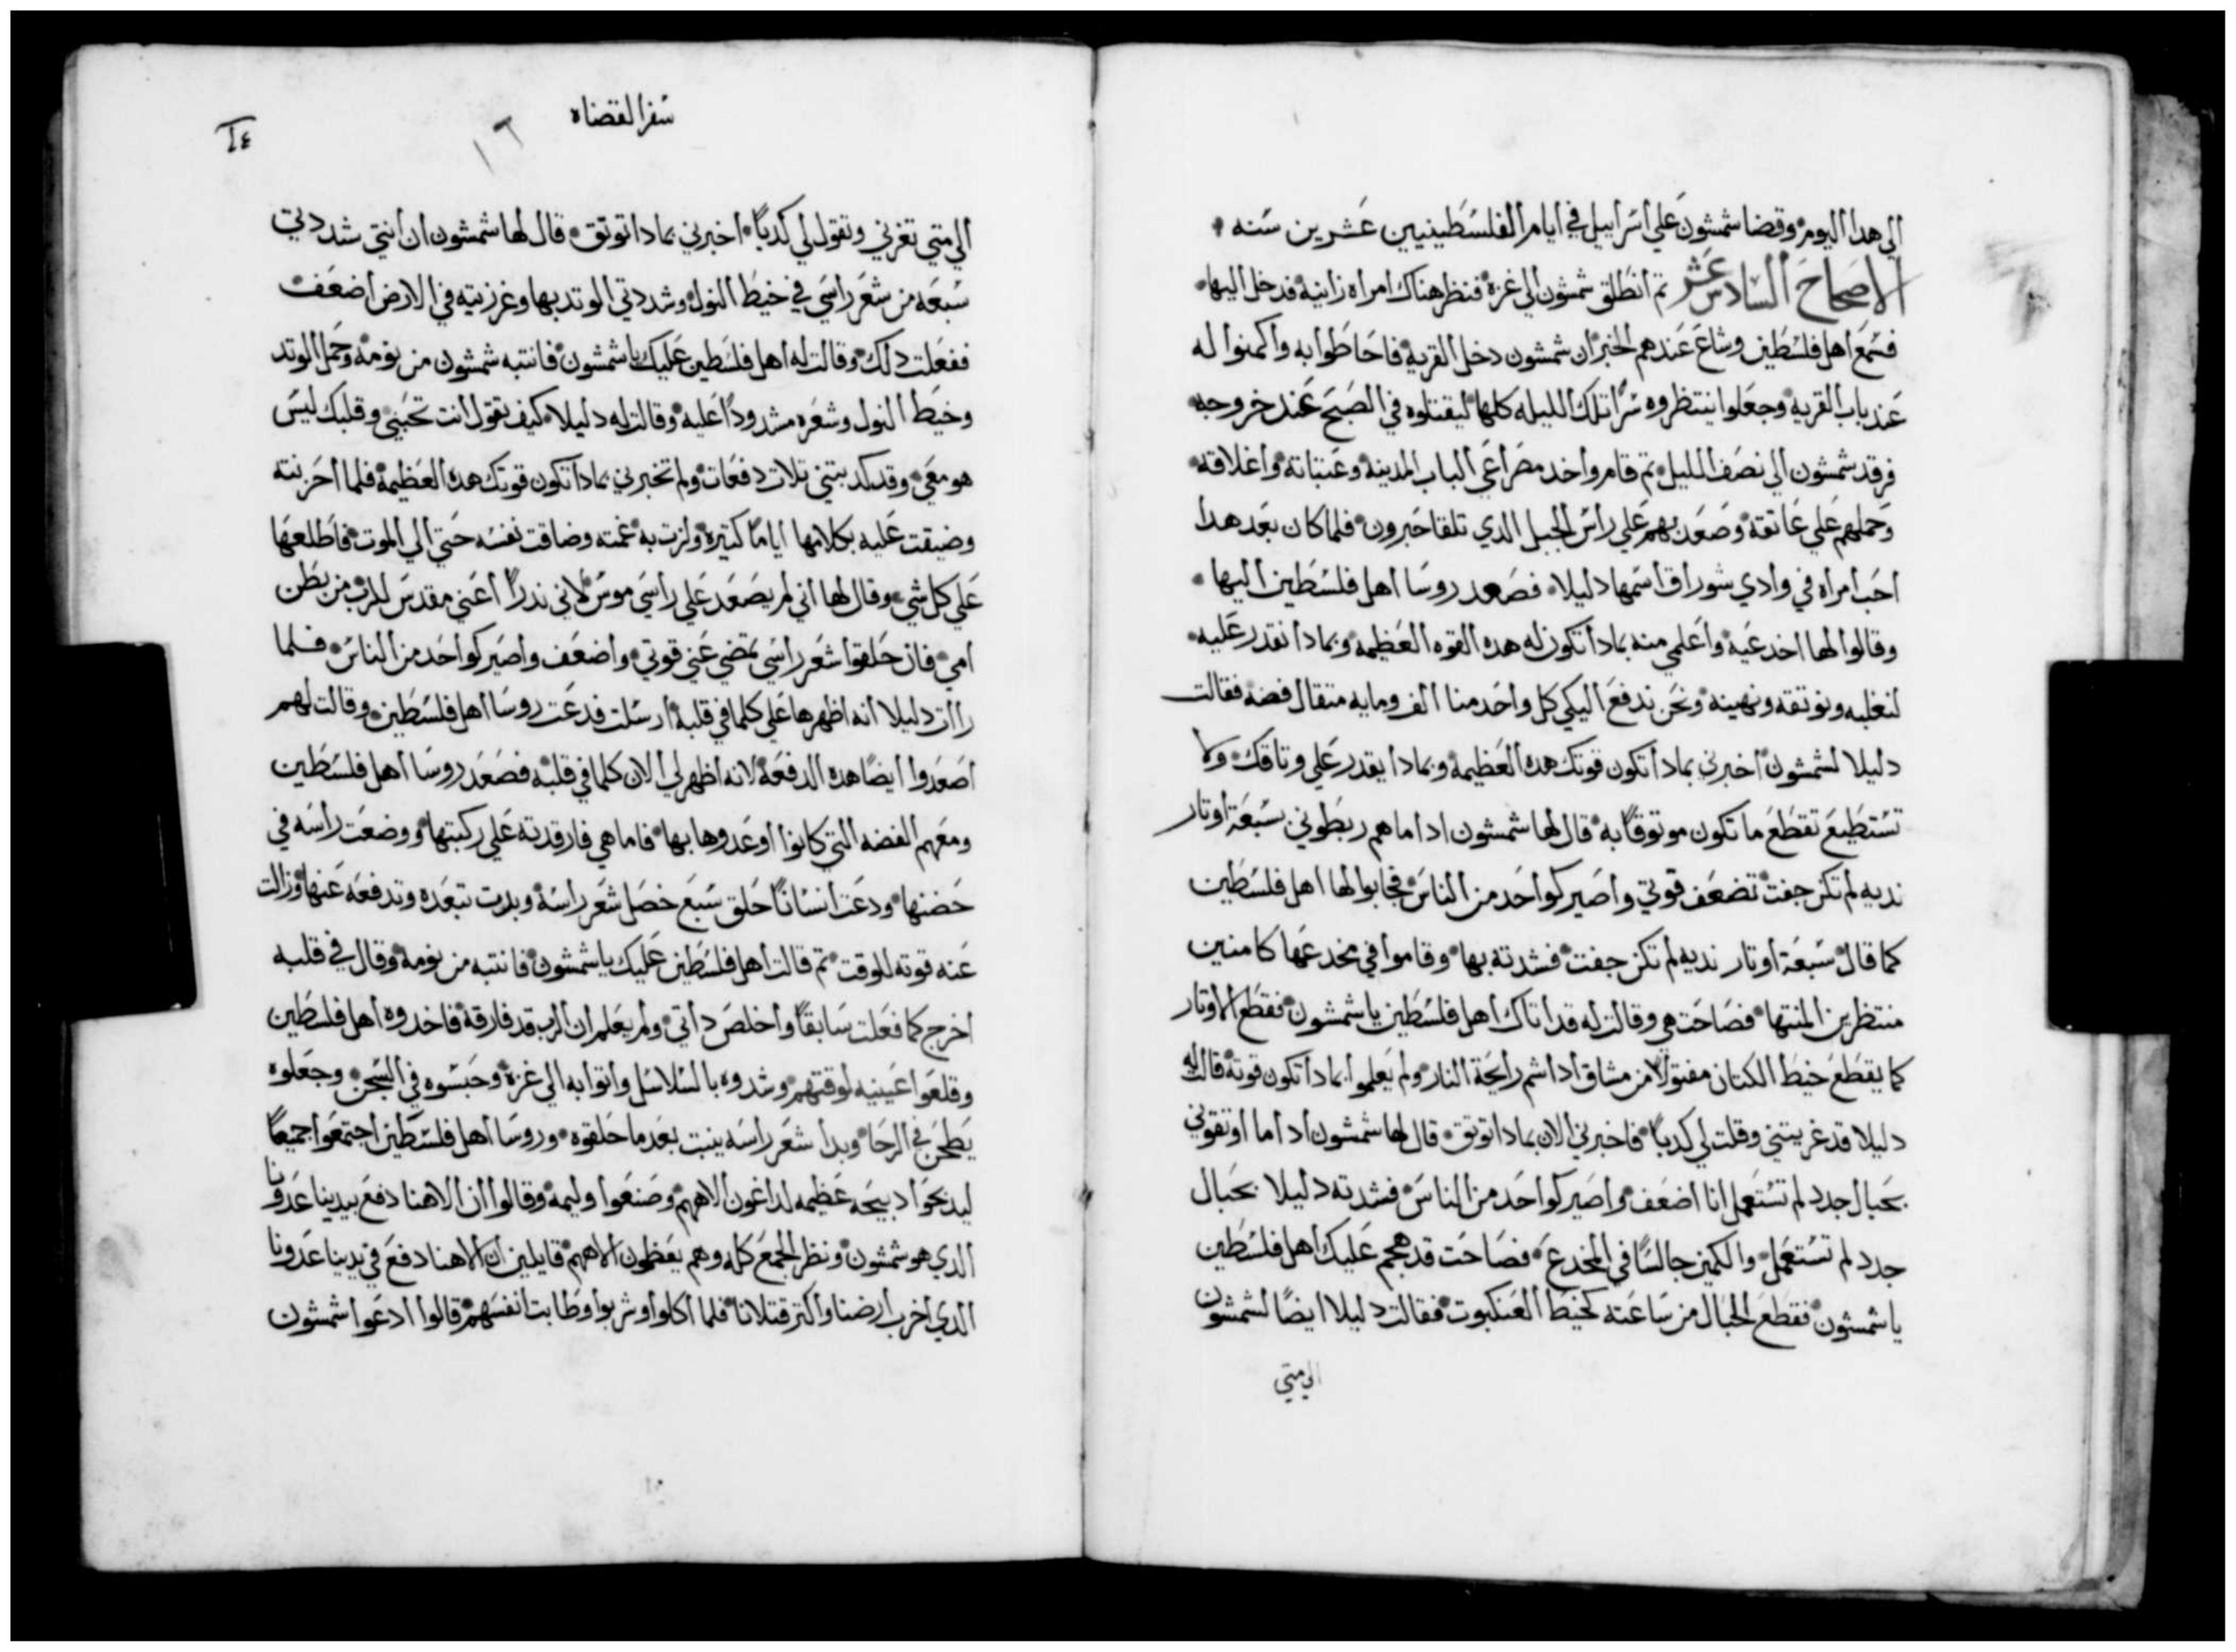 الي هدا اليوم وقضا شمشون علي اسراييل في ايام الفلسطينيين عشرين سنه
الاصحاح السادس عشر تم انطلق شمشون الي غزة فنظر هناك امراه زانية فدخل اليها
فسمع اهل فلسطين وشاع عندهم الخبر ان شمشون دخل القرية فاحاطوا به واكمنوا له
عند باب القرية وجعلوا ينتظروه سرًا تلك الليله كلها ليقتلوه في الصبح عند خروجه
فرقد شمشون الي نصف الليل تم قام واخد مصراعي الباب المدينة وعتباته واغلاقه
وحملهم علي عاتقه وصعد بهم علي راس الجبل الدي تلقا حبرون فلما كان بعد هدا
احب امراه في وادي شوراق اسمها دليلا فصعد روسا اهل فلسطين اليها
وقالوا لها اخدعيه واعلمي منه بمادا تكون له هده القوه العظيمه وبمادا نقدر عليه
لنغلبه ونوتقه ونهينه ونحن ندفع اليكي كل واحد منا الف ومايه متقال فضه فقالت
دليلا لشمشون اخبرني بمادا تكون قوتك هده العظيمة وبمادا يقدر علي وتاقك ولا
تستطيع تقطع ما تكون موتوقًا به قال لها شمشون ادا ما هم ربطوني سبعة اوتار
نديه لم تكن جفت تضعف قوتي واصير كواحد من الناس فجابوا لها اهل فلسطين
كما قال سبعة اوتار نديه لم تكن جفت فشدته بها وقاموا في مخدعها كامنين
منتظرين المنتها فصاحت هي وقالت له قد اتاك اهل فلسطين ياشمشون فقطع الاوتار
كما يقطع خيط الكتان مفتولًا من مشاق ادا شم رايحة النار ولم يعلموا بمادا تكون قوته قالت له
دليلا قد غريتني وقلت لي كدبًا فاخبرني الان بمادا توتق قال لها شمشون ادا ما اوتقوني
بحبال جدد لم تستعمل انا اضعف واصير كواحد من الناس فشدته دليلا بحبال
جدد لم تستعمل والكمين جالسًا في المخدع فصاحت قد هجم عليك اهل فلسطين
ياشمشون فقطع الحبال من ساعته كخيط العنكبوت فقالت دليلا ايضًا لشمشون
الي متي
سفر القضاه
١٦
الي متي تغرني وتقول لي كدبًا اخبرني بمادا توتق قال لها شمشون ان انتي شددتي
سبعه من شعر راسي في خيط النول وشددتي الوتد بها وغرزتيه في الارض اضعف
ففعلت دلك وقالت له اهل فلسطين عليك ياشمشون فانتبه شمشون من نومه وحمل الوتد
وخيط النول وشعره مشدودًا عليه وقالت له دليلا كيف تقول انت تحبني وقلبك ليس
هو معي وقد كدبتني تلات دفعات ولم تخبرني بمادا تكون قوتك هده العظيمة فلما احزنته
وضيقت عليه بكلامها ايامًا كتيرة ولزت به غمته وضاقت نفسه حتي الي الموت فاطلعها
علي كل شي وقال لها اني لم يصعد علي راسي موس لاني ندرًا اعني مقدس للرب من بطن
امي فان حلقوا شعر راسي تمضي عني قوتي واضعف واصير كواحد من الناس فلما
راات دليلا انه اظهرها علي كلما في قلبه ارسلت فدعت روسا اهل فلسطين وقالت لهم
اصعدوا ايضًا هده الدفعة لانه اظهر لي الان كلما في قلبه فصعد روسا اهل فلسطين
ومعهم الفضه التي كانوا اوعدوها بها فاما هي فارقدته علي ركبتها ووضعت راسه في
حضنها ودعت انسانًا حلق سبع خصل شعر راسه وبدت تبعده وتدفعه عنها وزالت
عنه قوته للوقت تم قالت اهل فلسطين عليك ياشمشون فانتبه من نومه وقال في قلبه
اخرج كما فعلت سابقًا واخلص داتي ولم يعلم ان الرب قد فارقه فاخدوه اهل فلسطين
وقلعوا عينيه لوقتهم وشدوه بالسلاسل واتوا به الي غزة وحبسوه في السجن وجعلوه
يطحن في الرحا وبدا شعر راسه ينبت بعد ما حلقوه وروسا اهل فلسطين اجتمعوا جميعًا
ليدبحوا دبيحه عظيمه لداغون الاههم وصنعوا وليمة وقالوا ان الاهنا دفع بيدينا عدونا
الدي هو شمشون ونظر الجمع كله وهم يعظمون الاههم قايلين ان الاهنا دفع في يدينا عدونا
الدي اخرب ارضنا واكتر قتلانا فلما اكلوا وشربوا وطابت انفسهم قالوا ادعوا شمشون